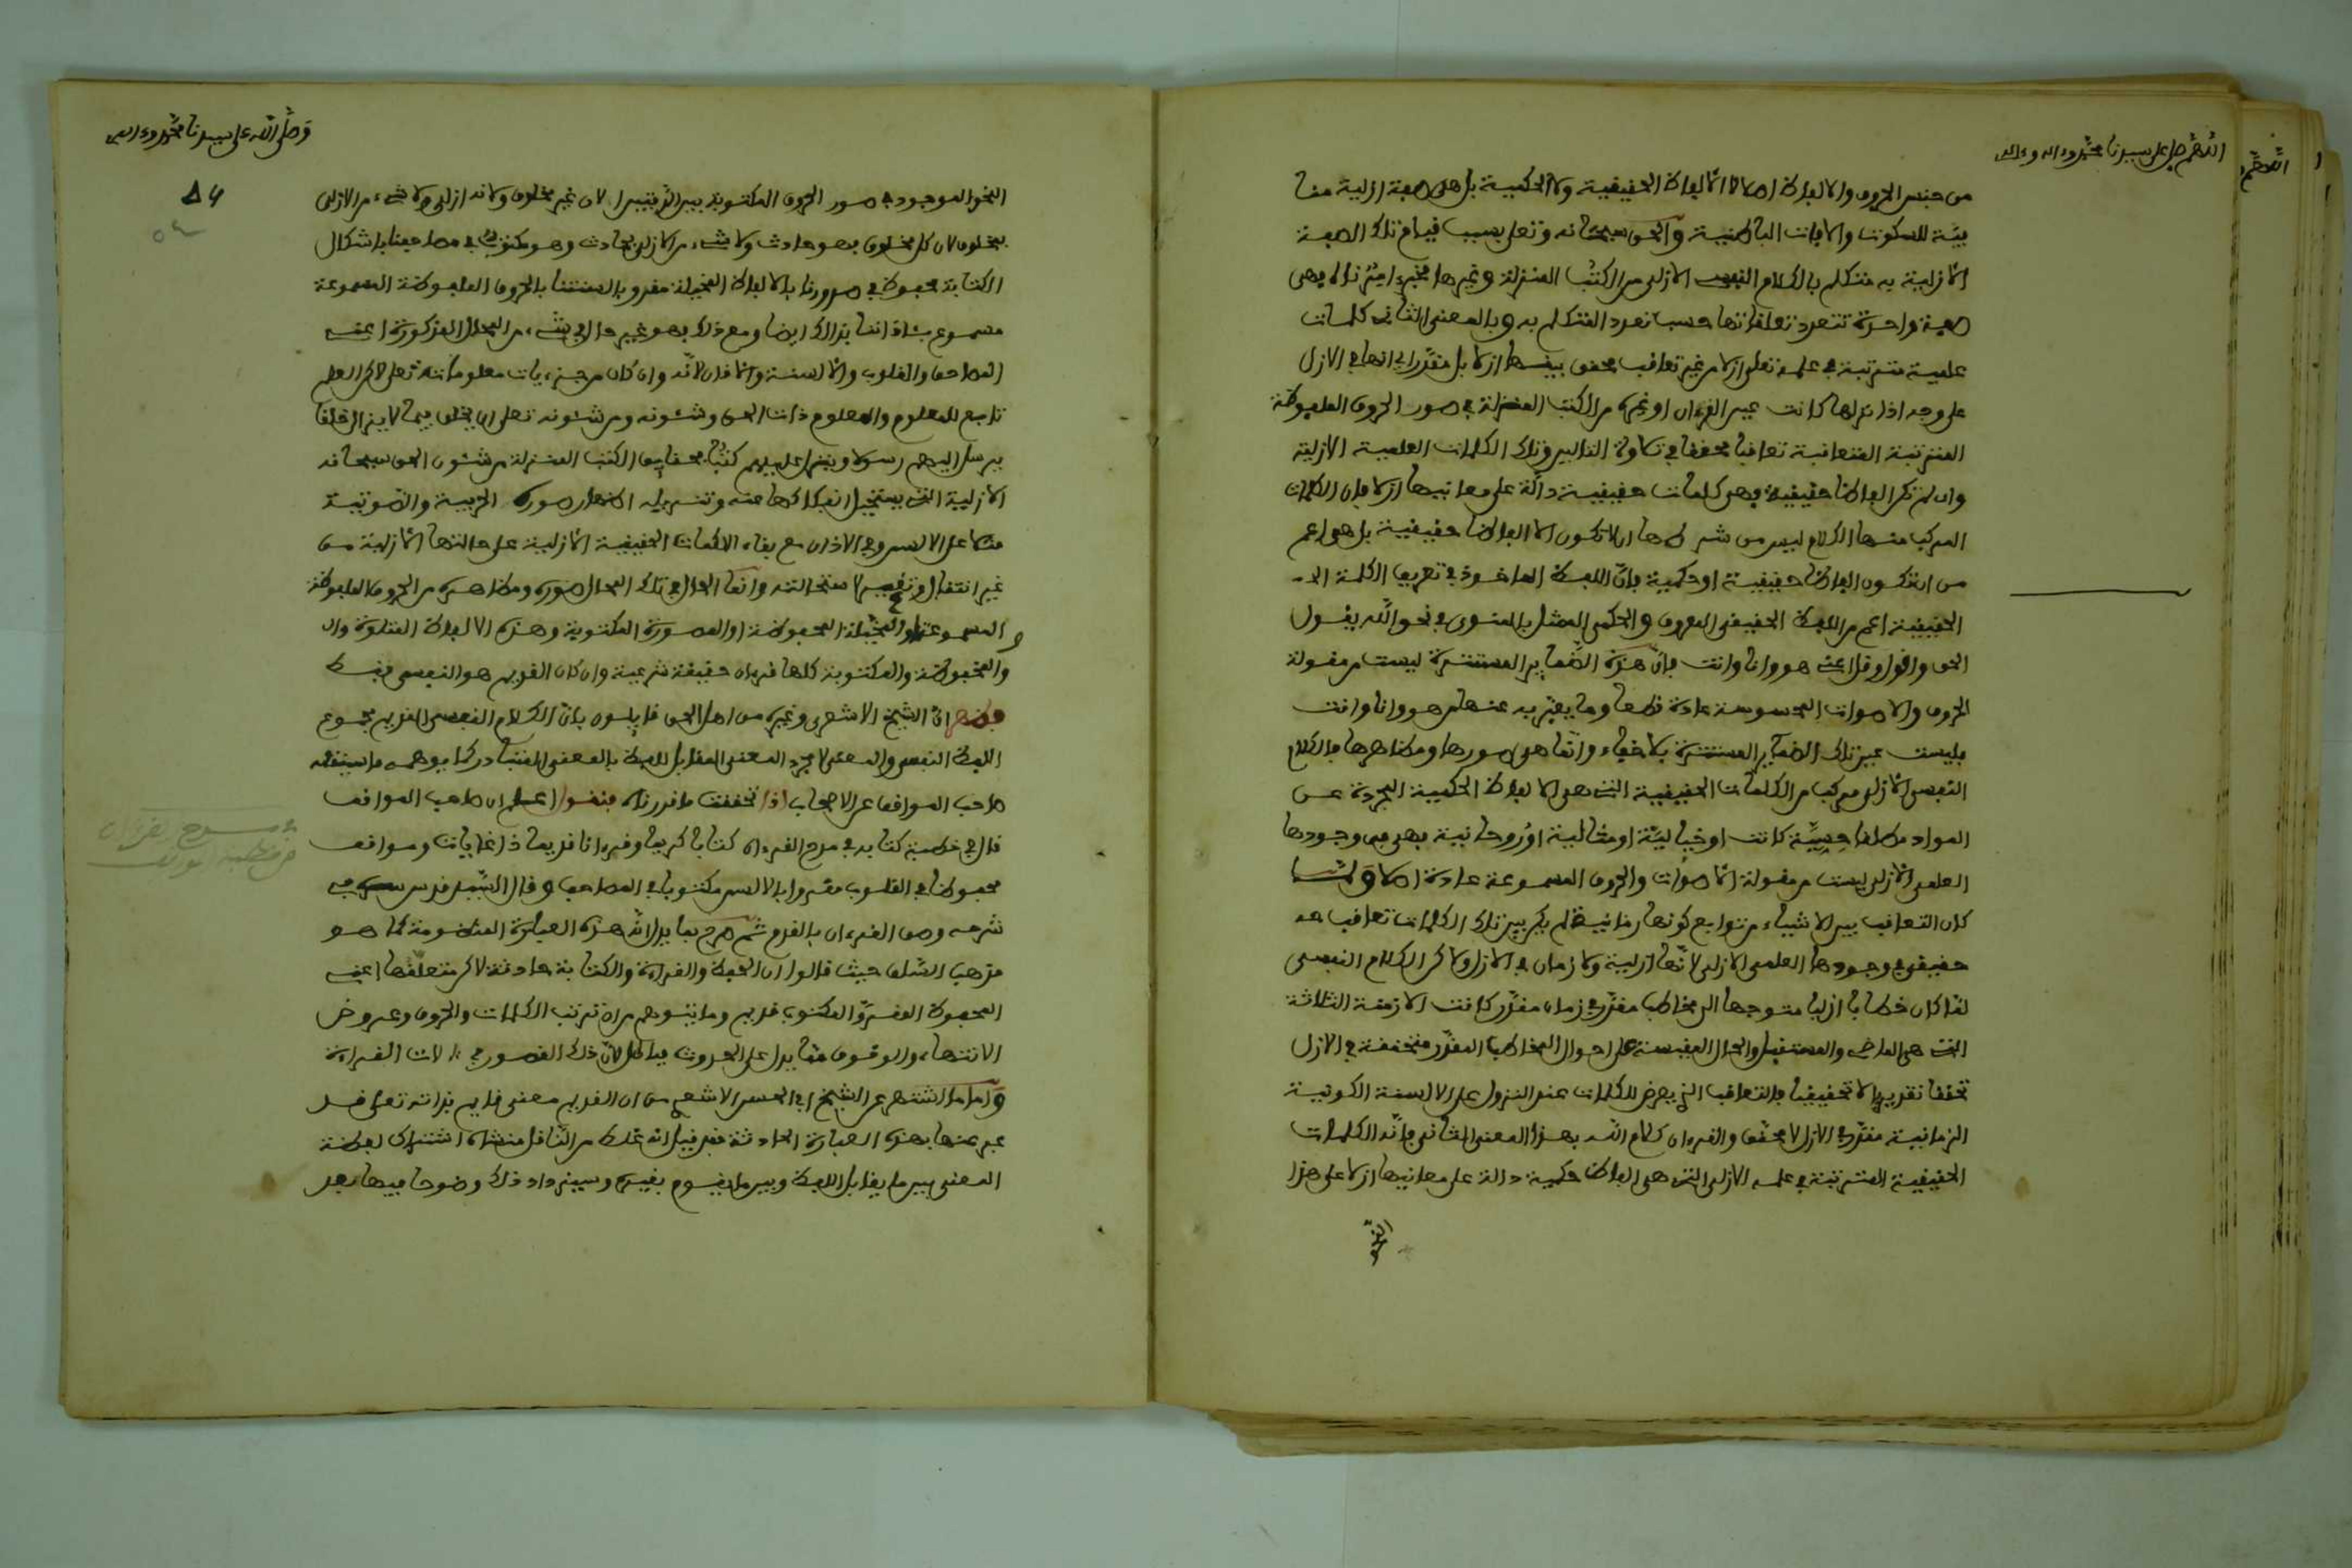 اللهم صل على سيدنا محمد وءاله
من جنس الحروف والالفاظ اصلا لا الالفاظ الحقيقية ولا الحكمية بل هى صفة ازلية منا
فية للسكوت والافات الباطنية والحق سبحانه وتعلى بسبب قيام تلك الصفة
الازلية به متكلم بالكلام النفسى الازلى من الكتب المنزلة وغيرها
صفة واحدة تتعدد تعلقاتها حسب تعدد المتكلم به وبالمعنى الثانى كلمات
علمية مترتبة فى علمه تعلى ازلا من غير تعاقب محقق بينها ازلا بل مقدر اى انها فى الازل
على وجه اذا نزلها كانت عين القرءان او غيره من الكتب المنزلة فى صور الحروف الملفوظة
المترتبة المتعاقبة تعاقبا محققا فى تلاوة التالين وتلك الكلمات العلمية الازلية
وان لم تكن الفاظا حقيقية فهى كلمات حقيقية دالة على معانيها ازلا فان الكلمات
المركب منها الكلام ليس من شرطها ان لا تكون الا الفاظا حقيقية بل هى اعم
من ان تكون الفاظا حقيقية او حكمية فان اللفظ الماخوذ فى تعريف الكلمة
الحقيقية اعم من اللفظ الحقيقى المعروف والحكمى الممثل بالمنوى فى نحو الله يقول
الحق واقول وقل اعنى هو وانا وانت فان هذه الضماير المستترة ليست من مقولة
الحروف والاصوات المحسوسة عادة قطعا وما يعبر به عنها من هو وانا وانت
فليست عين تلك الضماير المستترة بلا خفاء وانما هى صورها ومظاهرها فالكلام
النفسى الازلى مركب من الكلمات الحقيقية التى هى الالفاظ الحكمية المجردة عن
المواد مطلقا حسية كانت او خيالية او مثالية او روحانية فهى فى وجودها
العلمى الازلى ليست من مقولة الاصوات والحروف المسموعة عادة اصلا ولما
كان التعاقب بين الاشياء من توابع كونها زمانية لم يكن بين تلك الكلمات تعاقب
حقيقى فى وجودها العلمى الازلى لانها ازلية ولا زمان فى الازل ولاكن الكلام النفسى
لما كان خطابا ازليا متوجها الى مخاطب مقدر فى زمان مقدر كانت الازمنة الثلاثة
التى هى الماضى والمستقبل والحال المقيسة على احوال المخاطب المقدر متحققة فى الازل
تحققا تقديريا لا تحقيقيا فالتعاقب الذى يعرض للكلمات عند النزول على الالسنة الكونية
الزمانية مقدر فى الازل لا محقق والقرءان كلام الله بهذا المعنى الثانى فانه الكلمات
الحقيقية المترتبة فى علمه الازلى التى هى الفاظ حكمية دالة على معانيها ازلا على هذا
النحو
وصلى الله على سيدنا محمد وءاله
54
٥٤
النحو الموجود فى صور الحروف المكتوبة بين الدفتين لان غير مخلوق ولانه ازلى ولا شىء من الازلى
بمخلوق لان كل مخلوق فهو حادث ولا شىء من الازلى بحادث وهو مكتوب فى مصاحفنا باشكال
الكتابة محفوظ فى صدورنا بالالفاظ المخيلة مقرو بالسنتنا بالحروف الملفوظة المسموعة
مسموع بئاذاننا بذلك ايضا ومع ذلك فهو غير حال فى شىء من المحال المذكورة اعنى
المصاحف والقلوب والالسنة والاذان لانه وان كان من معلوماته تعلى لاكن العلم
تابع للمعلوم والمعلوم ذات الحق وشئونه ومن شئونه تعلى ان يخلق فيما لا يزال خلقا
يرسل اليهم رسولا وينزل عليهم كتبا فحقايق الكتب المنزلة من شئون الحق سبحانه
الازلية التى يستحيل انفكاكها عنه اظهار صورة الحرفية والصوتية
منها على الالسن وفى الاذان مع بقاء الكلمات الحقيقية الازلية على حالتها الازلية من
غير انتقال وتغير لاستحالته وانما الحال فى تلك المحال صوره ومظاهره من الحروف الملفوظة
المسموعة او المخيلة المحفوظة او الصورة المكتوبة وهذه الالفاظ المتلوة
والمحفوظة والمكتوبة كلها قرءان حقيقة شرعية وان كان القديم هو النفسى فقط
فظهر ان الشيخ الاشعرى وغيره من اهل الحق قايلون بان الكلام النفسى القديم مجموع
اللفظ النفسى والمعنى لا مجرد المعنى المقابل للفظ بالمعنى المتبادر كما يوهمه ما سينقله
صاحب المواقف عن الاصحاب اذا تحققت ما قررناه فنقول اعلم ان صاحب المواقف
قال فى خطبة كتابه فى مدح القرءان كتابا كريما وقرءانا قديما ذا غايات ومواقف
محفوظا فى القلوب مقروا بالالسن مكتوبا فى المصاحف وقال السيد قدس سره فى
شرحه وصف القرءان بالقدم ثم صرح بما يدل على انه هذه العبارة المنظومة كما هو
مذهب السلف حيث قالوا ان الحفظ والقراءة والكتابة حادثة لاكن متعلقها اعنى
المحفوظ المقرو المكتوب قديم وما يتوهم من ان ترتب الكلمات والحروف وعروض
الانتهاء والوقوف مما يدل على الحدوث فباطل لان ذلك القصور فى ءالات القراءة
واما ما اشتهر عن الشيخ ابى الحسن الاشعرى من ان القديم معنى قايم بذاته تعلى قد
عبر عنها بهذه العبارة الحادثة فقد قيل انه غلط من الناقل منشاه اشتراك لفظة
المعنى بين ما يقابل اللفظ وبين ما يقوم بغيره وسيزداد ذلك وضوحا فيما بعد